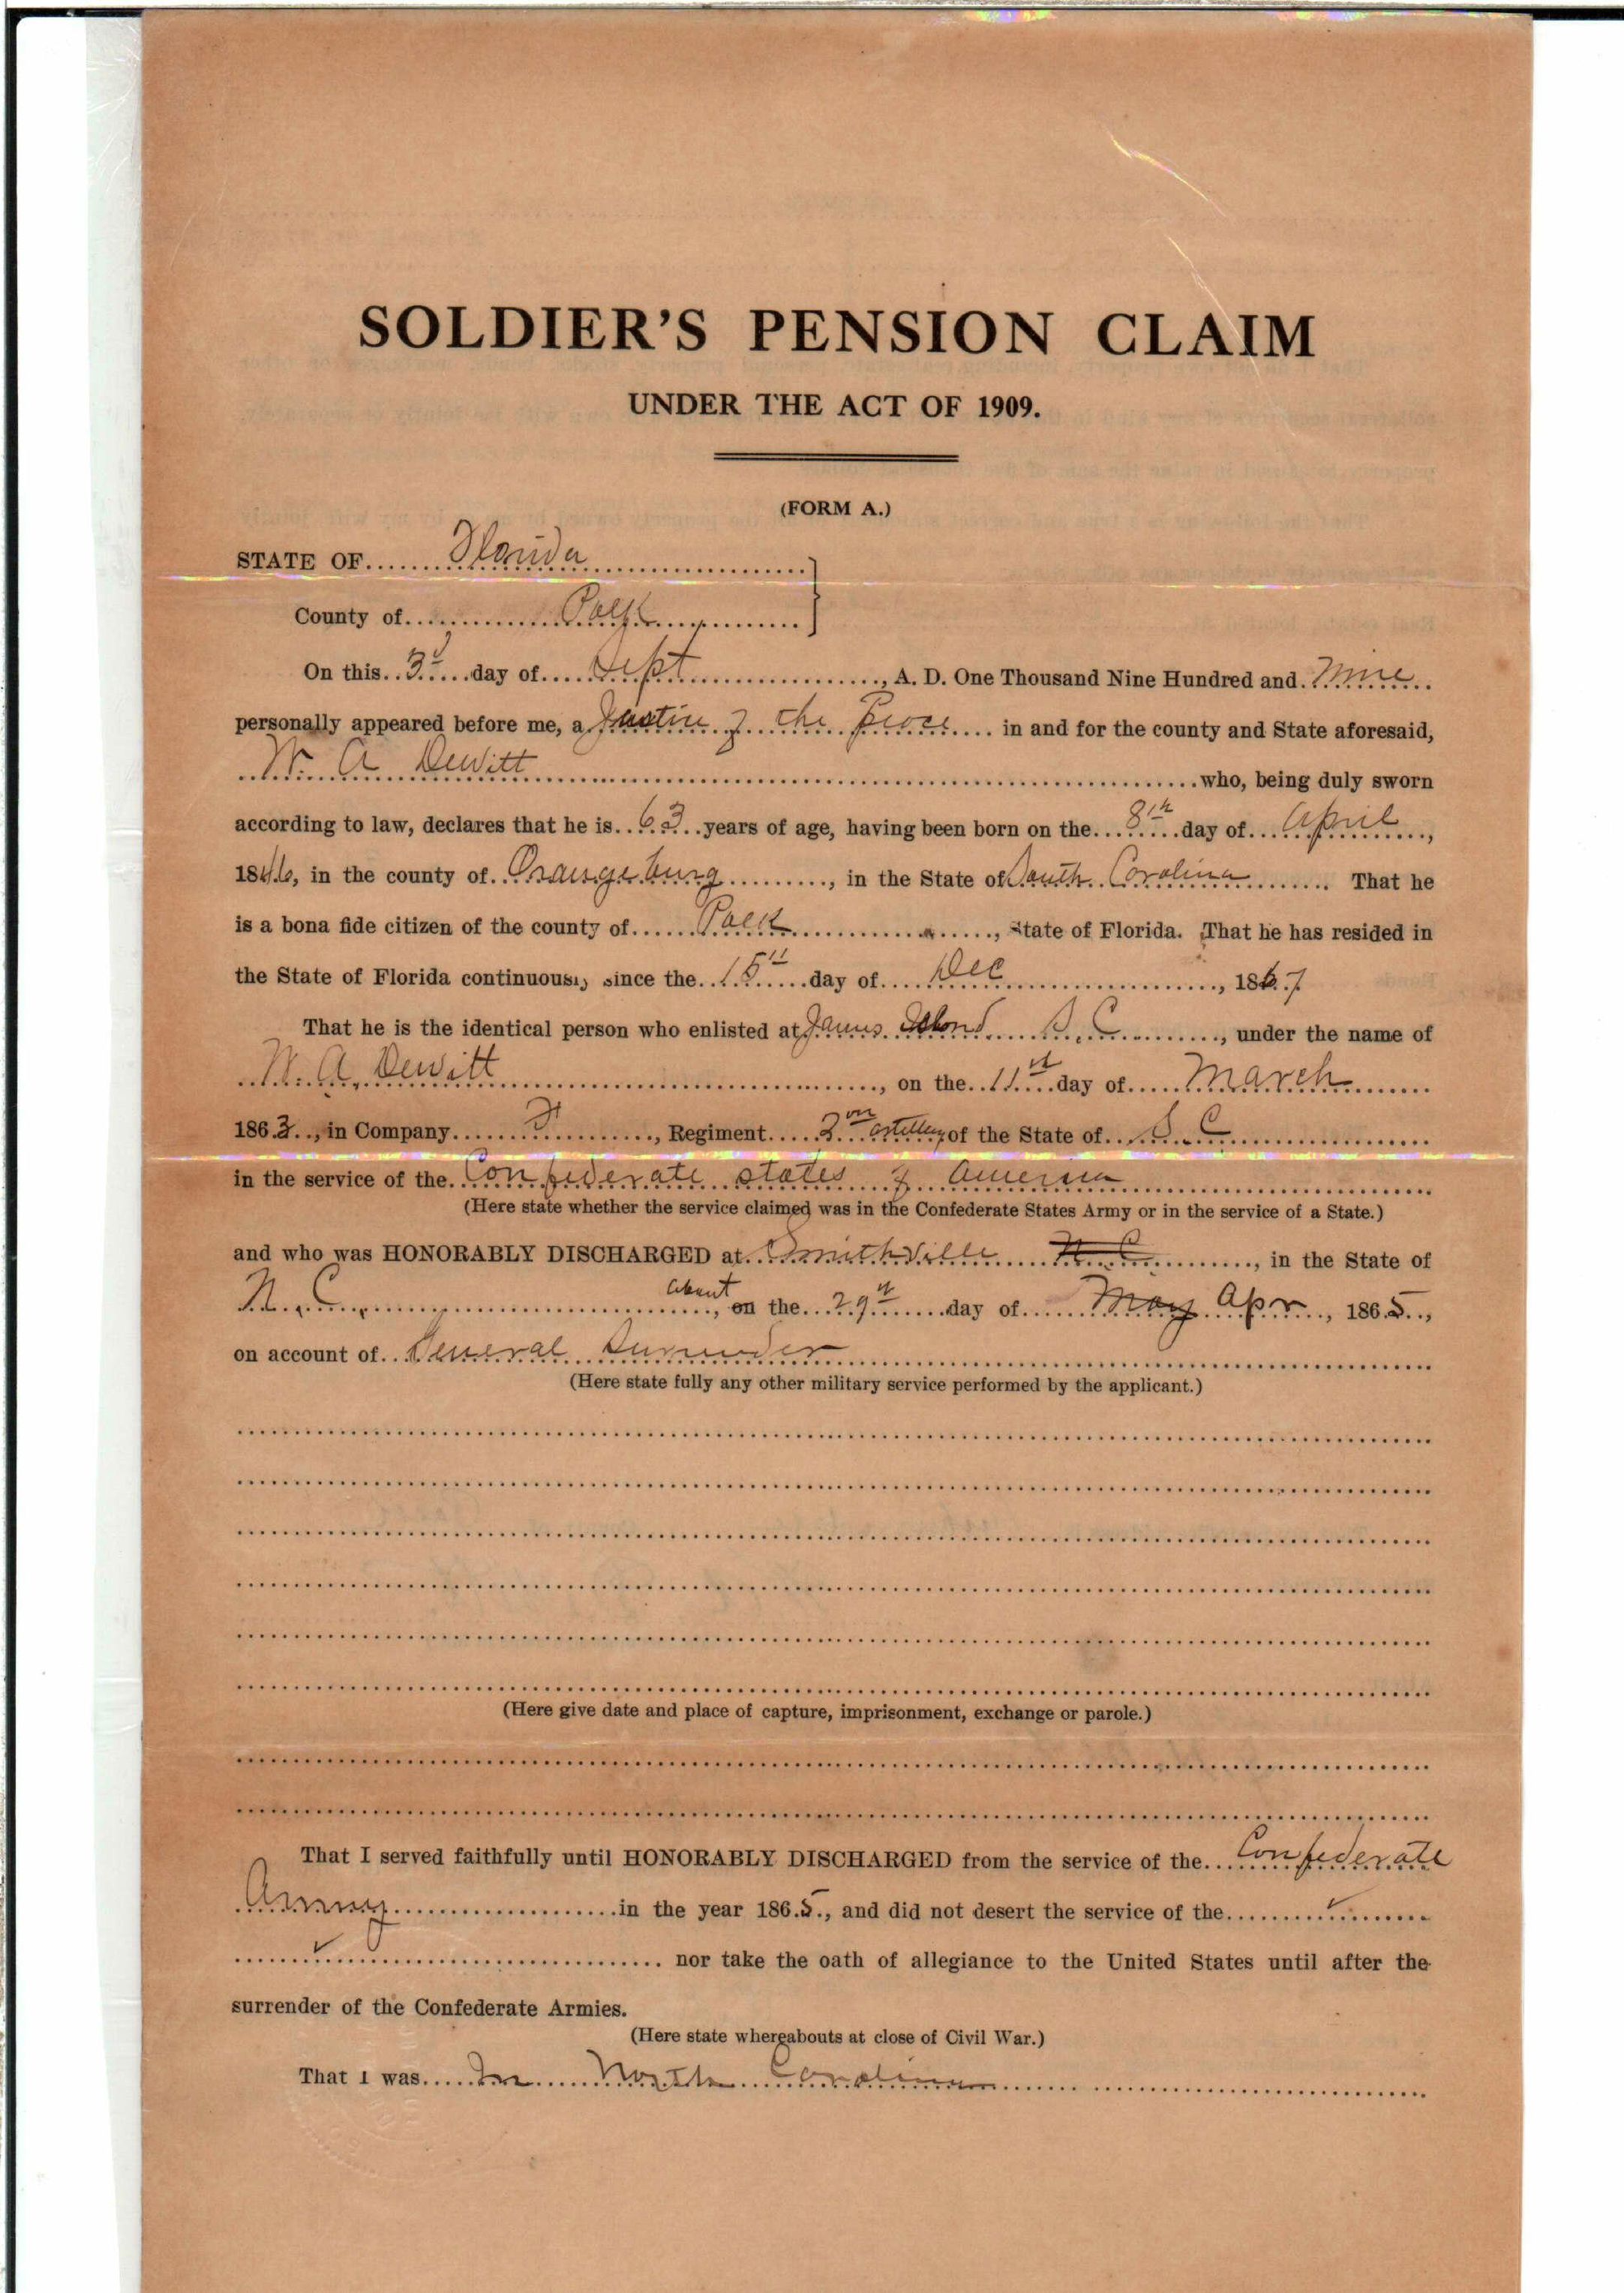 SOLDIER'S PENSION CLAIM
UNDER THE ACT OF 1909.
(FORM A.)
STATE OF Florida
County of Polk
On this 3d day of Sept, A. D. One Thousand Nine Hundred and Nine
personally appeared before me, a Justice of the Peace in and for the county and State aforesaid,
W. A Dewitt who, being duly sworn
according to law, declares that he is 63 years of age, having been born on the 8th day of April,
1846, in the county of Orangeburg, in the State of South Carolina. That he
is a bona fide citizen of the county of Polk, State of Florida. That he has resided in
the State of Florida continuously since the 15th day of Dec, 1867
That he is the identical person who enlisted at James Island S. C., under the name of
W. A. Dewitt, on the 11th day of March
1863, in Company F, Regiment 2nd artillery of the State of S. C
in the service of the Confederate states of America
(Here state whether the service claimed was in the Confederate States Army or in the service of a State.)
and who was HONORABLY DISCHARGED at Smithville N C, in the State of
N. C., about on the 29th day of May Apr, 1865,
on account of General Surrender
(Here state fully any other military service performed by the applicant.)
(Here give date and place of capture, imprisonment, exchange or parole.)
That I served faithfully until HONORABLY DISCHARGED from the service of the Confederate
Army in the year 1865, and did not desert the service of the
nor take the oath of allegiance to the United States until after the
surrender of the Confederate Armies.
(Here state whereabouts at close of Civil War.)
That I was In North Carolina